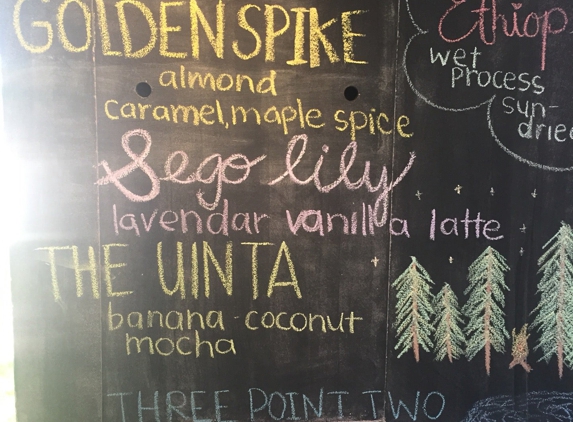 GOLDEN SPIKE
almond
caramel, maple spice
Sego lily
lavendar vanilla latte
THE UINTA
banana coconut
mocha
THREE POINT TWO
Ethiop
wet
Process
sun-
drie